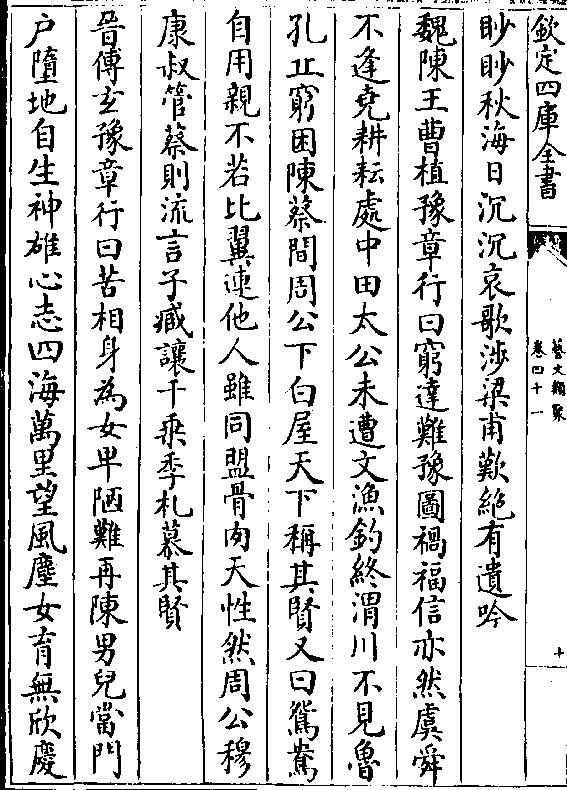 欽定四庫全書
藝文類聚
卷四十一
十
眇眇秋海日沉沉哀歌涉梁甫歎絶有遺吟
魏陳王曹植豫章行曰窮達難豫圖禍福信亦然虞舜
不逢堯耕耘處中田太公未遭文漁釣終渭川不見魯
孔丘窮困陳蔡間周公下白屋天下稱其賢又曰鴛鴦
自用親不若比翼連他人雖同盟骨肉天性然周公穆
康叔管蔡則流言子臧讓千乗季札慕其賢
晉傅玄豫章行曰苦相身為女卑陋難再陳男兒當門
户墮地自生神雄心志四海萬里望風塵女育無欣慶